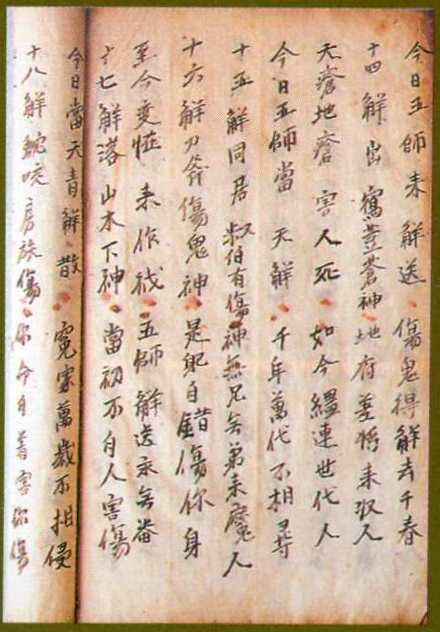 今日五師来解送傷鬼得解去千春
十四解出窩荳蒼神地府差将来収人
天瘡地瘡害人死如今緼連世代人
今日五師當天解千年萬代不相尋
十五解同君叔伯有傷神無兄無弟来魔人
十六解刀斧傷鬼神是躬自錯傷你身
至今变怪来作祅五師解送永無畨
十七解落山木下神當初不白人害傷
今日當天青解散寃家萬歲不相侵
十八解蛇咬房族傷你今自着害你傷